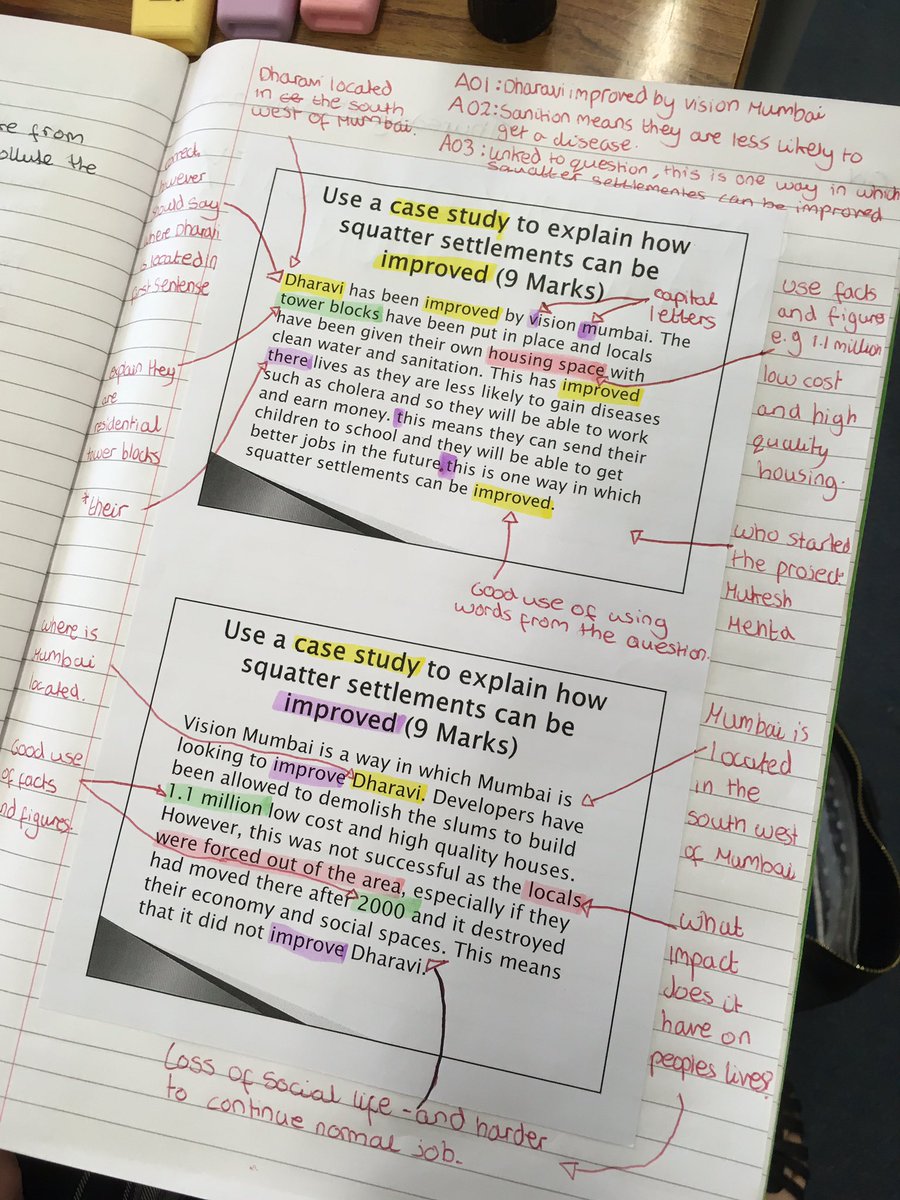 re from
ollute the
Dharavi located
in the south
west of Mumbai.
A01: Dharavi improved by vision Mumbai
A02: Sanition means they are less likely to
get a disease.
A03: linked to question, this is one way in which
squatter settlementes can be improved
however
should say
where Dharavi
is located in
first sentense
explain they
are
residential
tower blocks
*their
Use a case study to explain how
squatter settlements can be
improved (9 Marks)
Dharavi has been improved by vision mumbai. The
tower blocks have been put in place and locals
have been given their own housing space with
clean water and sanitation. This has improved
there lives as they are less likely to gain diseases
such as cholera and so they will be able to work
and earn money. this means they can send their
children to school and they will be able to get
better jobs in the future, this is one way in which
squatter settlements can be improved.
capital
letters
use facts
and figures
e.g 1.1 million
low cost
and high
quality
housing.
who started
the project
Mukesh
Menta
Good use of using
words from the question.
where is
Mumbai
located.
Good use
of facts
and figures.
Use a case study to explain how
squatter settlements can be
improved (9 Marks)
Vision Mumbai is a way in which Mumbai is
looking to improve Dharavi. Developers have
been allowed to demolish the slums to build
1.1 million low cost and high quality houses.
However, this was not successful as the locals
were forced out of the area, especially if they
had moved there after 2000 and it destroyed
their economy and social spaces. This means
that it did not improve Dharavi.
Mumbai is
located
in the
south west
of Mumbai
what
impact
does it
have on
peoples lives?
Loss of social life - and harder
to continue normal job.